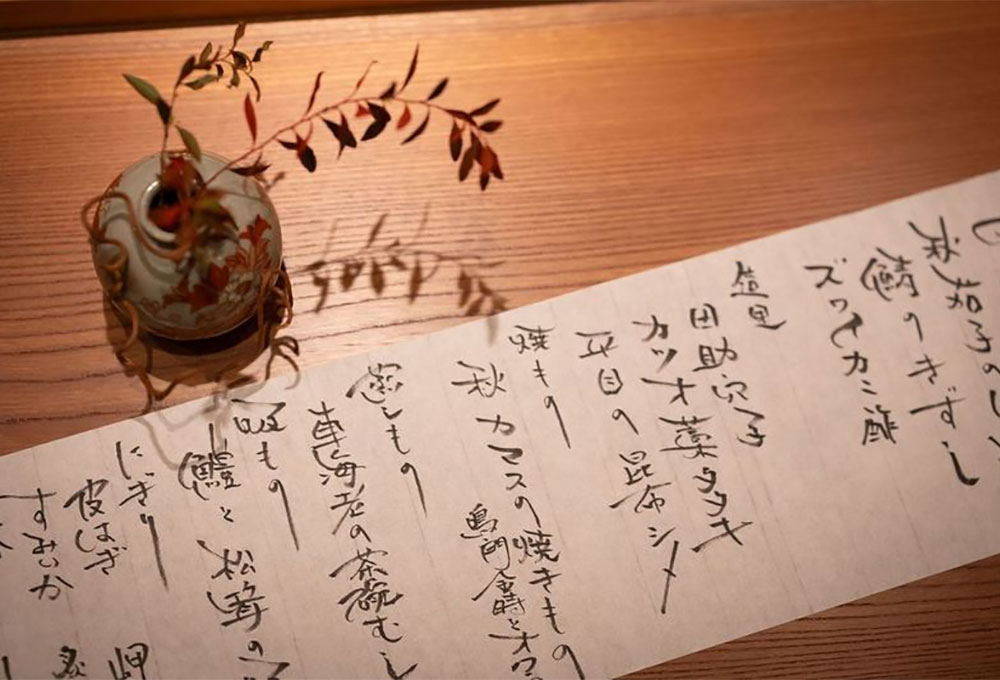 秋茄子の
鯖のきずし
ズワイカニ酢
造里
田助穴子
カツオ藁タタキ
平目の昆布シメ
焼もの
秋カマスの焼きもの
鳴門金時とオク
蒸しもの
車海老の茶碗むし
吸もの
鱧と松茸の
にぎり
岬
皮はぎ
すみいか